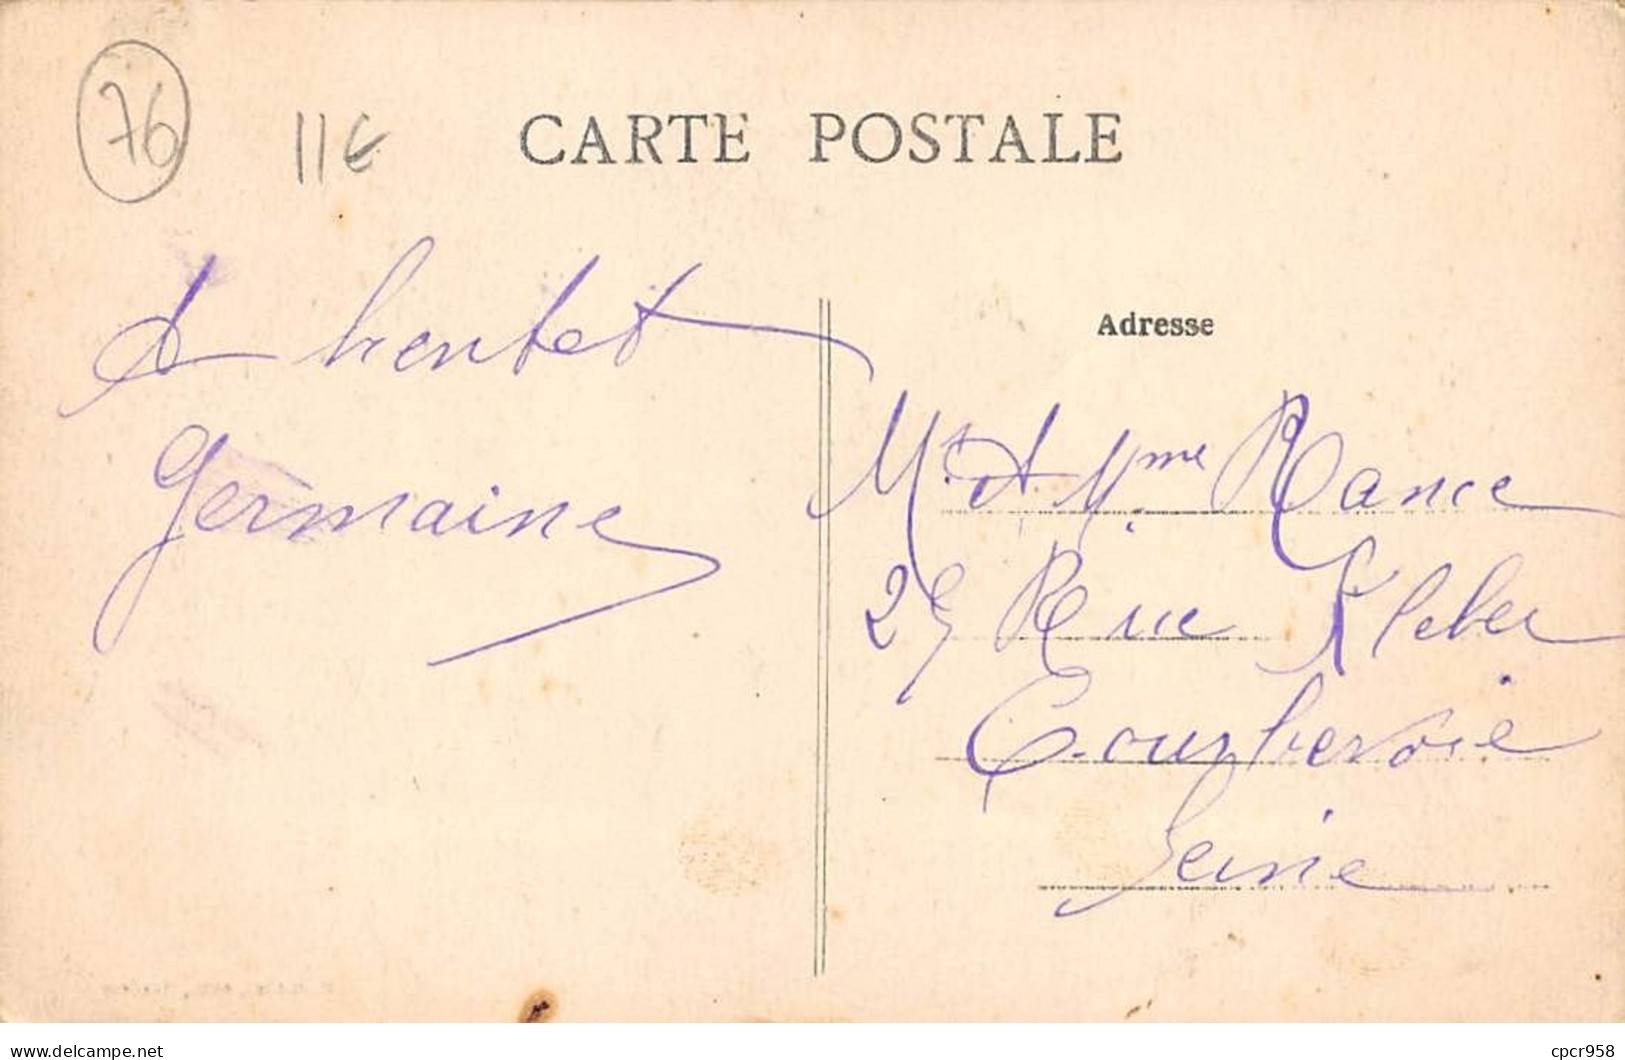 76
11€
CARTE POSTALE
A bientot
Germaine
Adresse
Mr. et Mme Rance
29 Rue Kleber
Courbevoie
Seine
www.delcampe.net
cpcr958